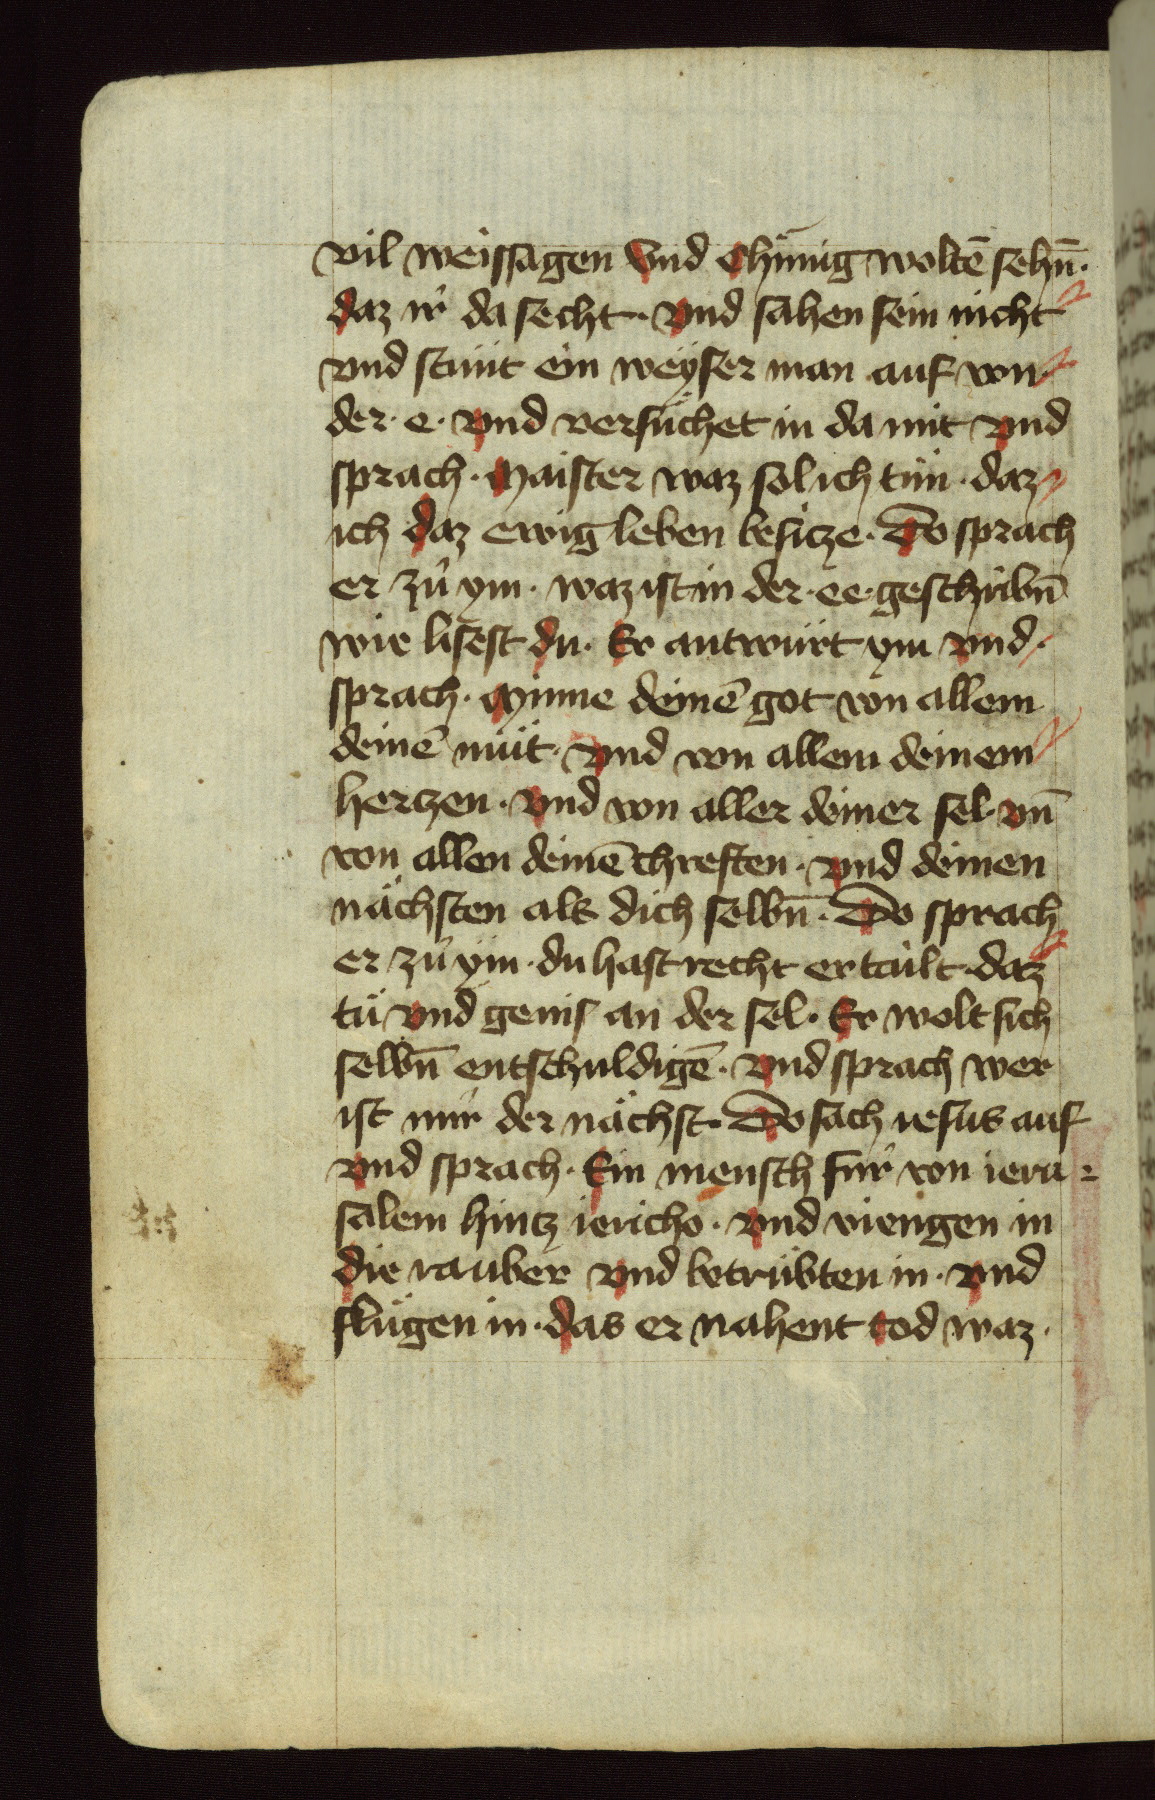 vil weissagen Vnd Chünig woltē sehn̄·
daz ir da secht· vnd sahen sein nicht
vnd stüut ein weÿser man auf von
der· e· vnd versuchet in da mit vnd
sprach· Maister waz sol ich tün· daz
ich daz ewig leben besitze· Do sprach
er zů ym· waz ist in der· ee· geschribn̄
wie lisest du· Er antwürt ym vnd·
sprach· Minne deinē got von allem
deinē müt· vnd von allem deinem
hertzen· vnd von aller deiner sel· vn̄
von allen deinē chreften· vnd deinen
nächsten als dich selbn̄· Do sprach
er zů ÿm· du hast recht ertailt· daz
tü vnd genis an der sel· Er wolt sich
selbn̄ entschuldigē· vnd sprach wer
ist mir der nächst· Do sach iesus auf
vnd sprach· Ein mensch für von ieru⸗
salem hintz iericho· vnd viengen in
die rauber vnd betrübten in· vnd
slügen in· das er nahent tod waz·